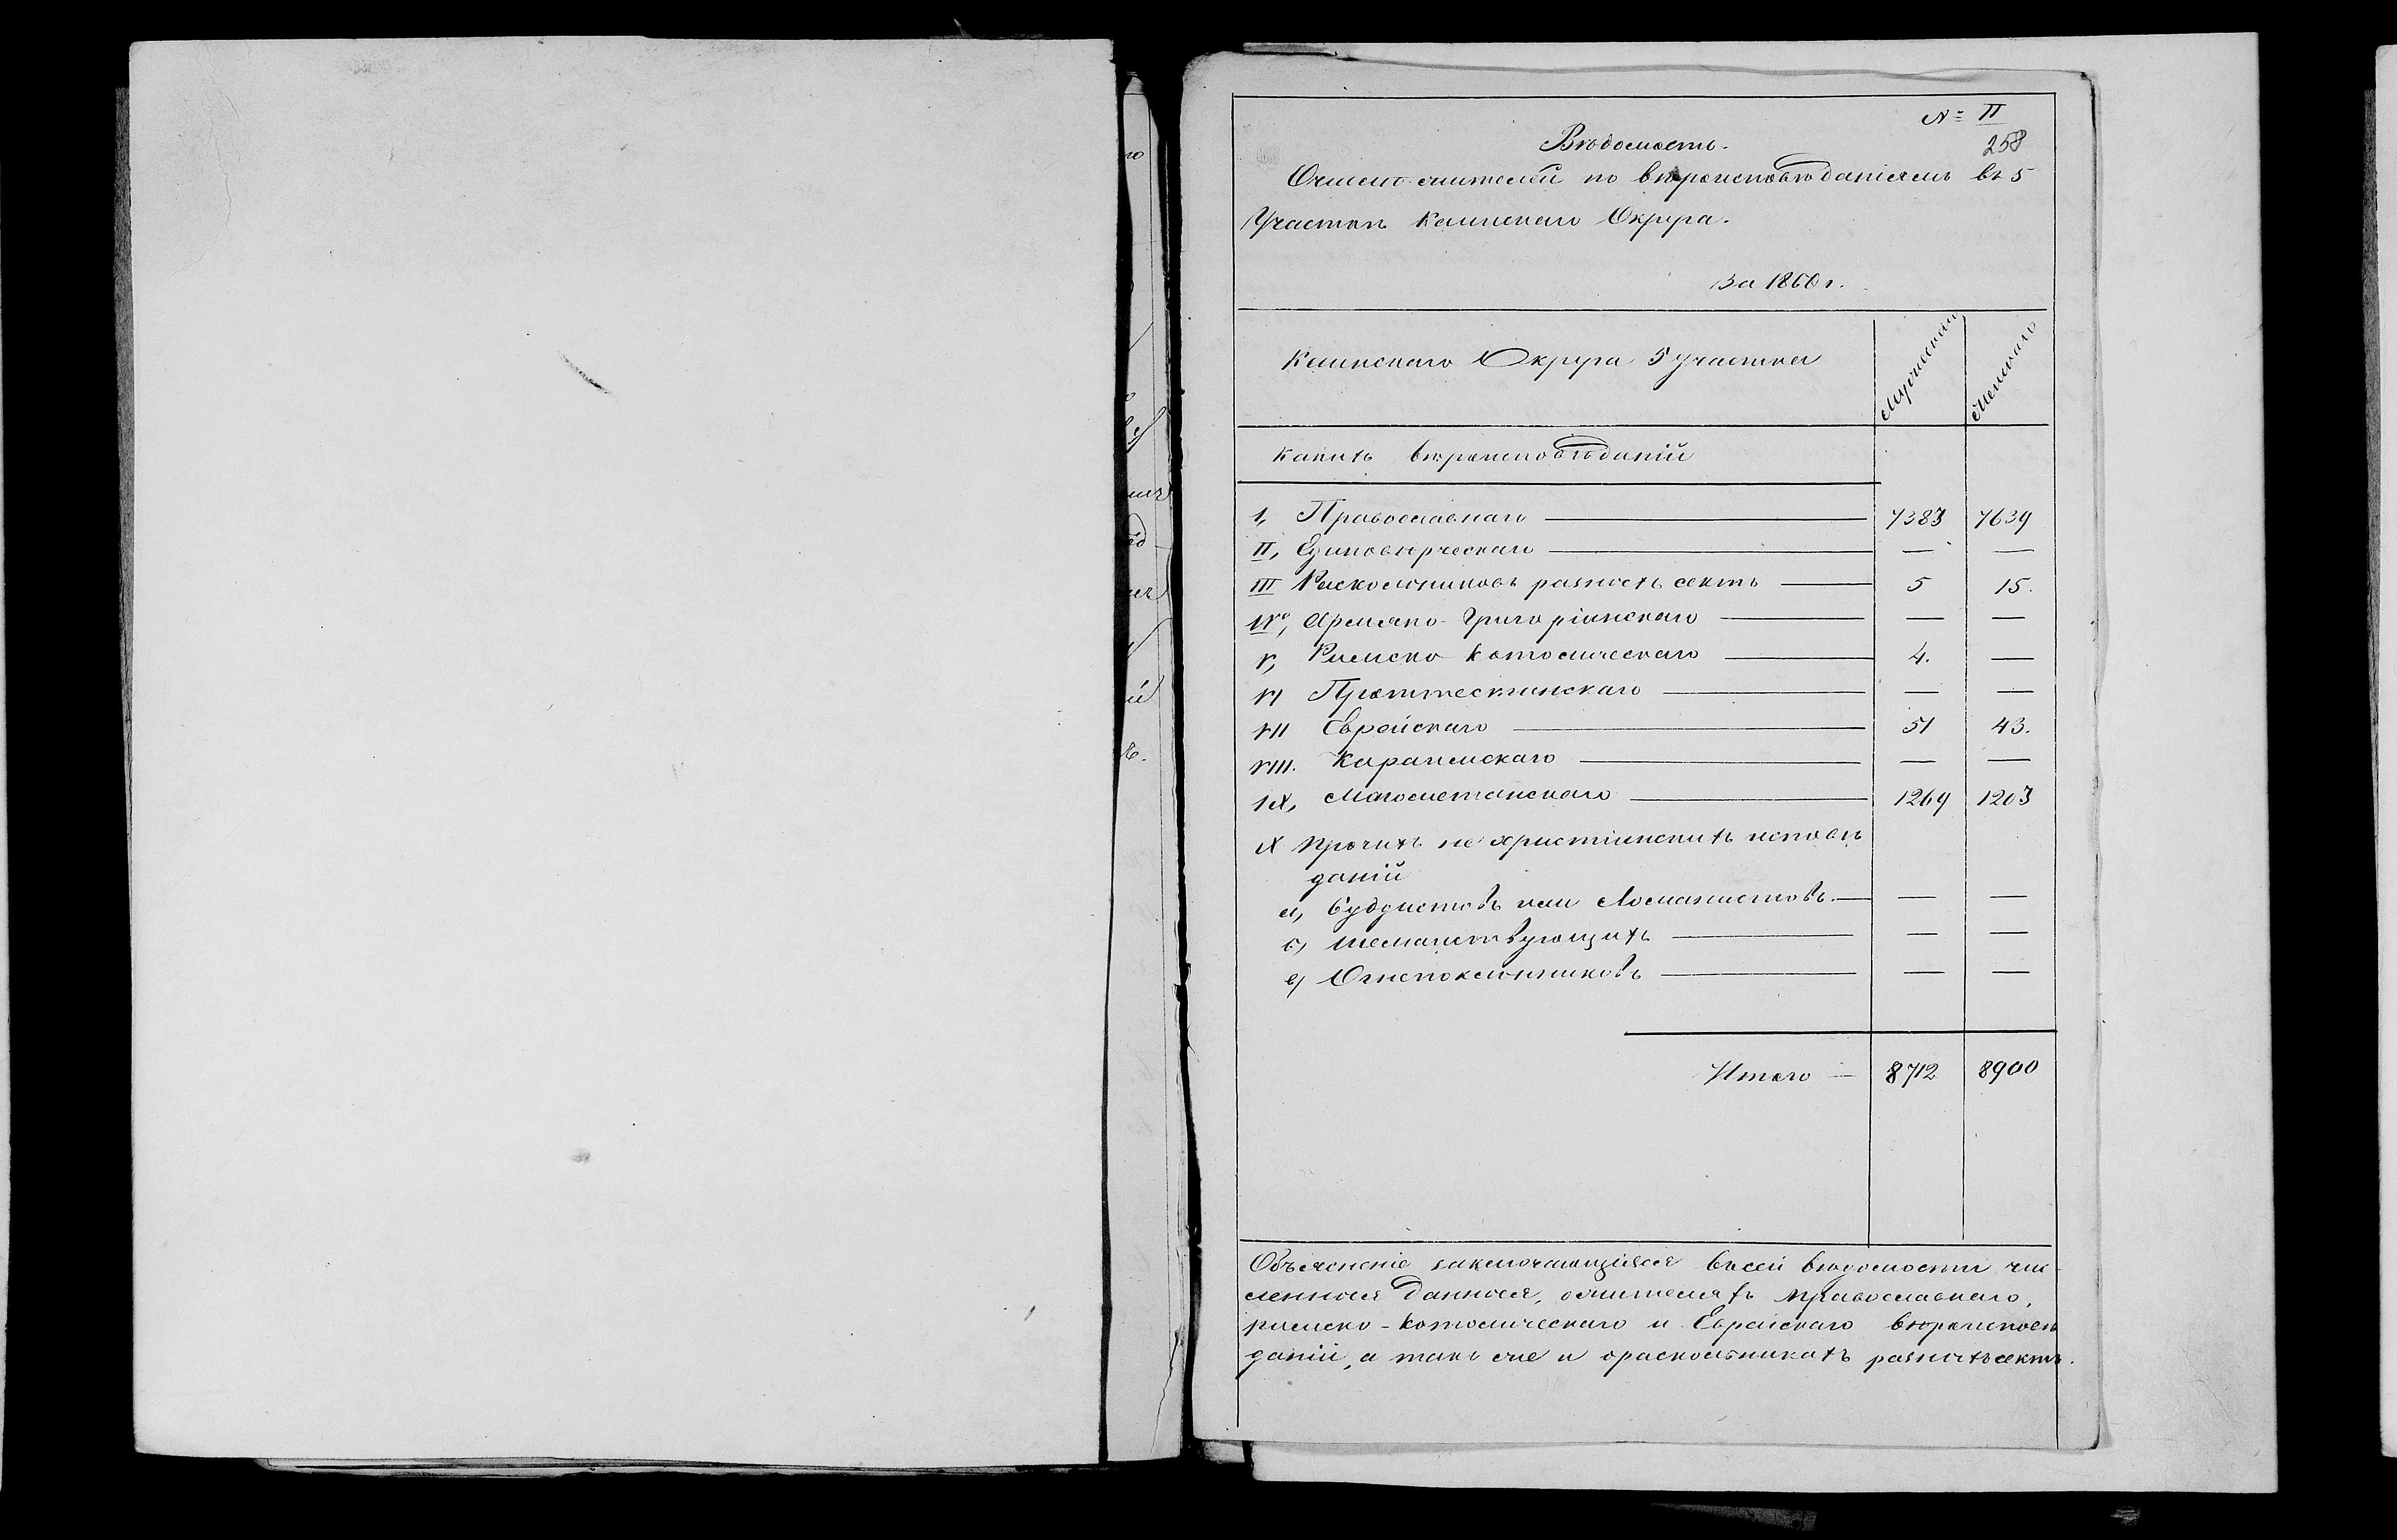 № II
258
Вѣдомость.
О числѣ жителей по вѣроисповѣданіямъ въ 5
Участкѣ Каинскаго Округа.
За 1860 г.
Каинскаго Округа 5 участка
Мужескаго
Женскаго
Какихъ вѣроисповѣданій
I, Православнаго — 7383 7639
II, Единовѣрческаго — — —
III Раскольниковъ разныхъ сектъ — 5 15.
IV, Армяно-Григоріянскаго — — —
V, Римско Католическаго — 4. —
VI Протестанскаго — — —
VII Еврейскаго — 51 43.
VIII. Караимскаго — — —
IX, Магометанскаго — 1269 1203
X Прочихъ не христіянскихъ исповѣ
даній
а, Буддистовъ или Ламаистовъ. — — —
б, Шаманствующихъ — — —
в, Огнепоклонниковъ — — —
Итого — 8712 8900
Объясненіе заключающіяся въсей вѣдомости чис
ленныя данныя, ожителяхъ православнаго,
римско-католическаго и Еврейскаго вѣроисповѣ
даній, а такъ же и ораскольникахъ разныхъ сектъ.